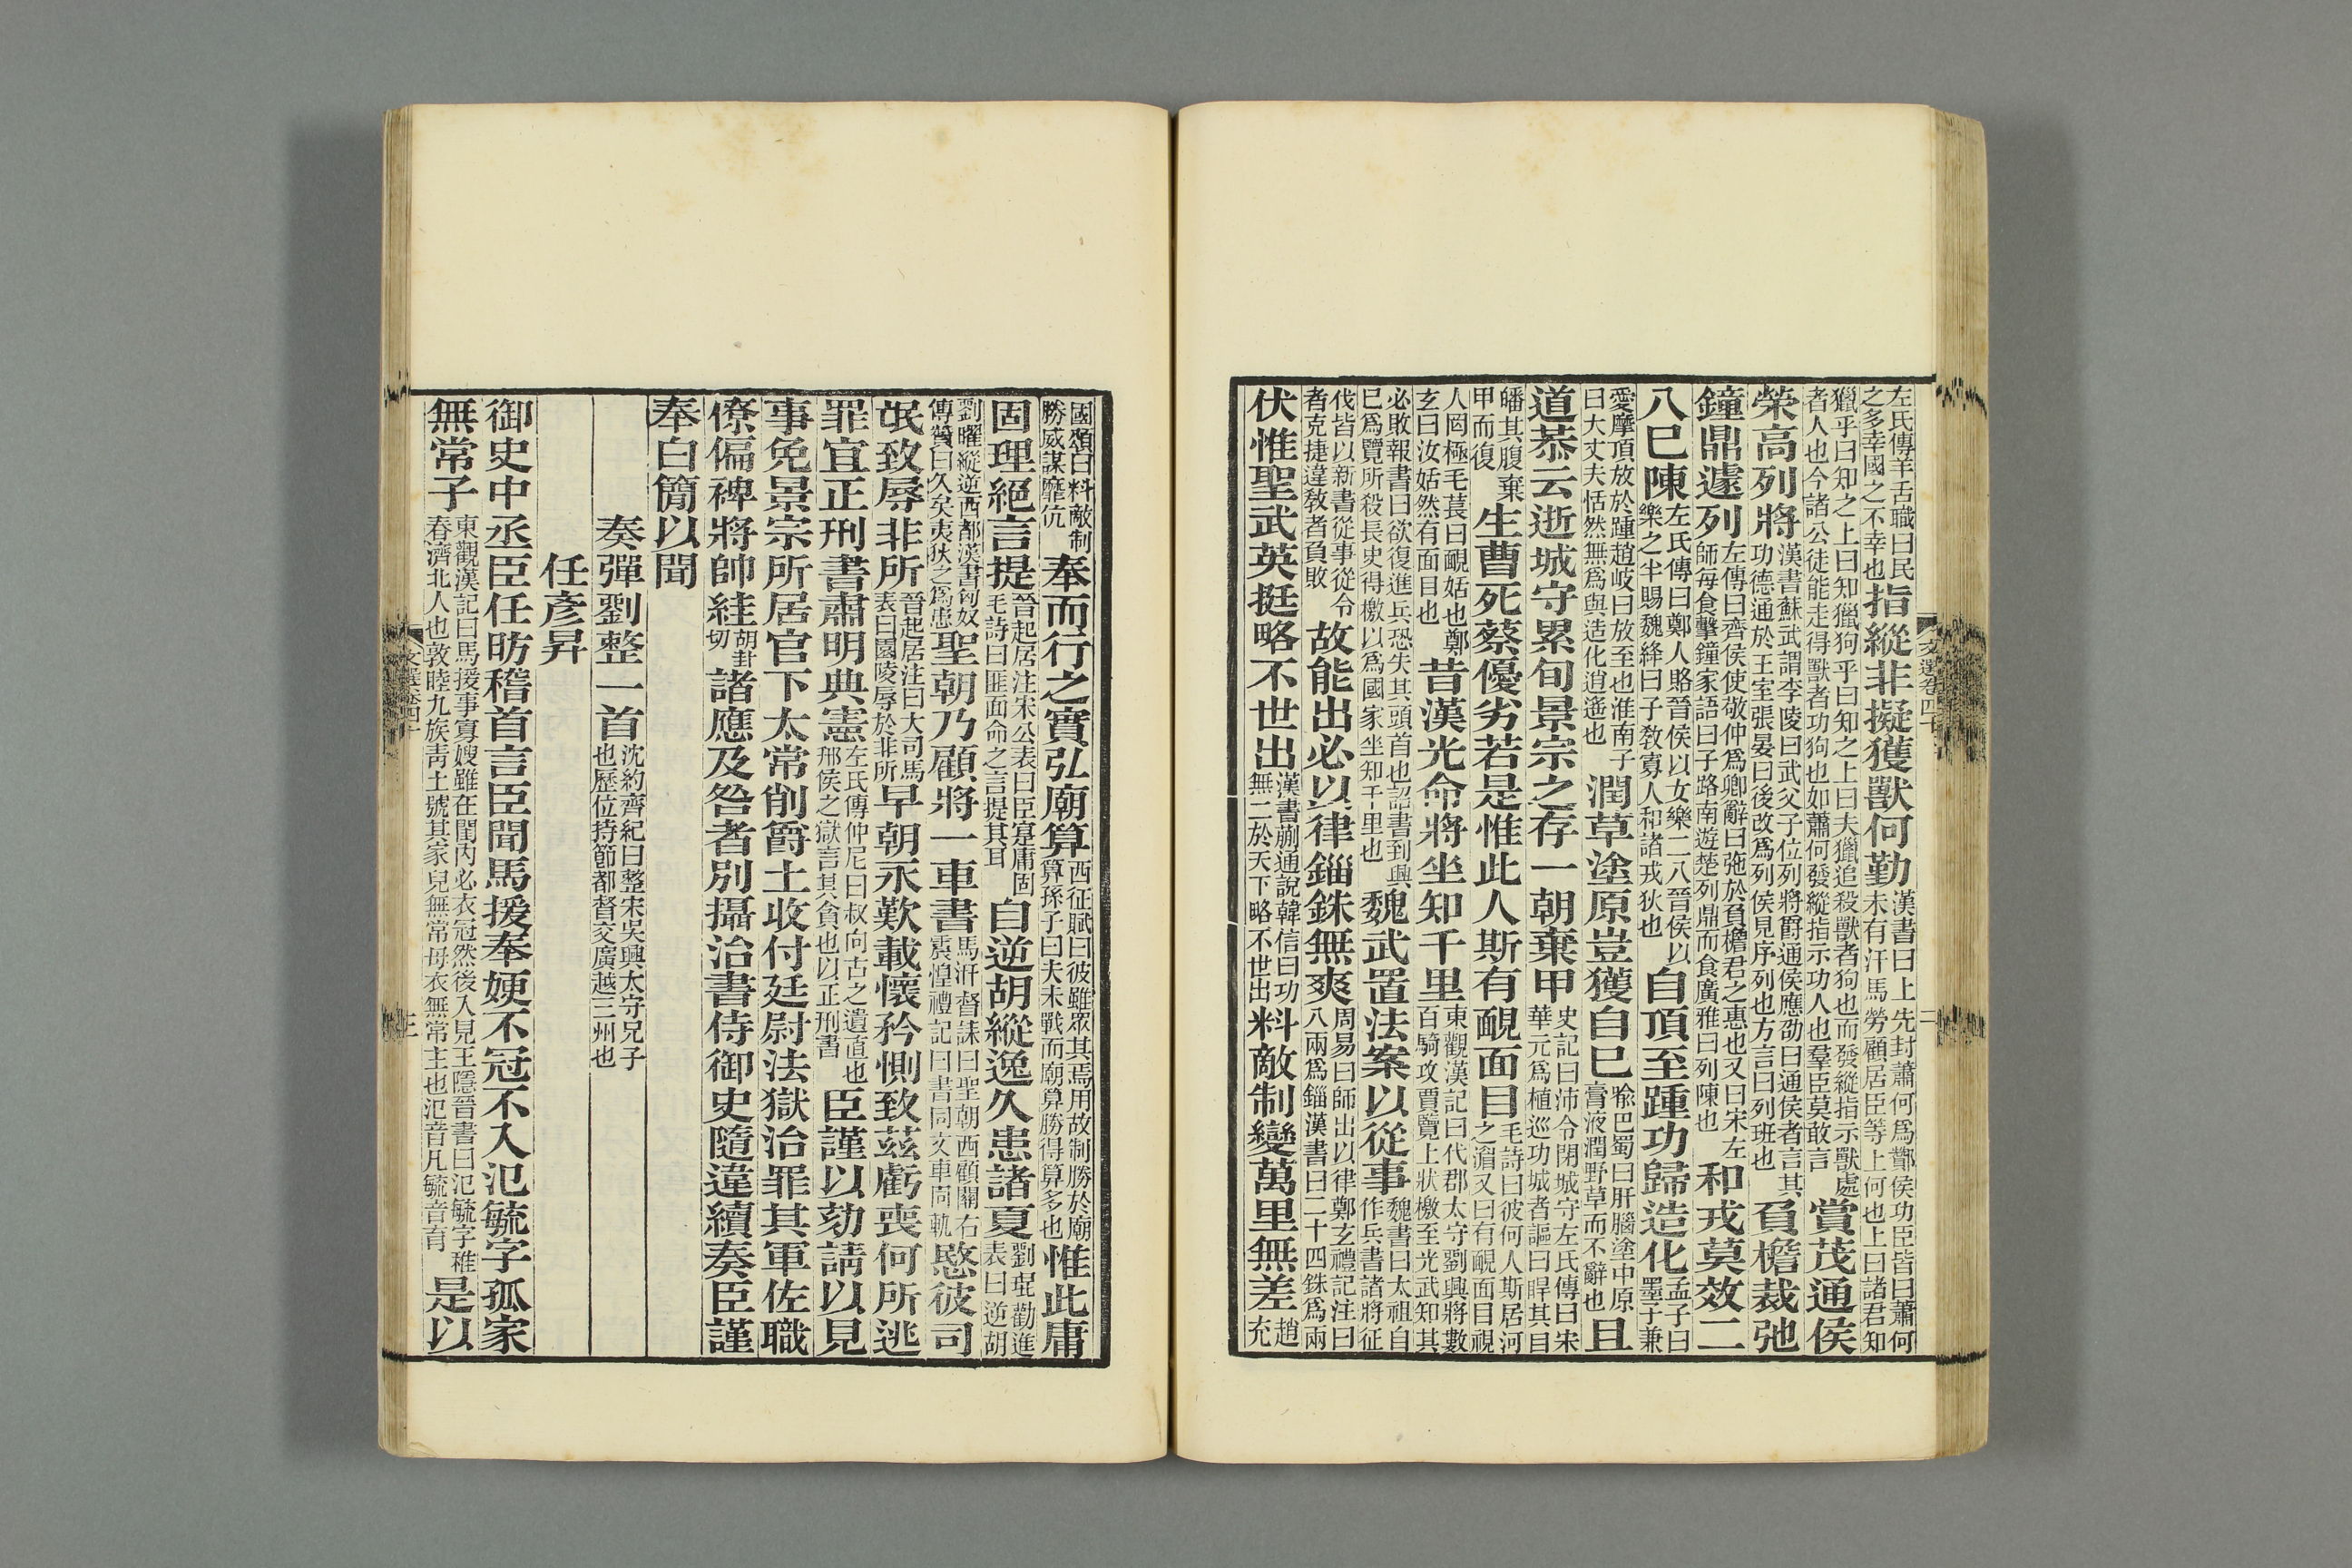 左氏傳羊舌職曰民
之多幸國之不幸也
指縱非擬獲獸何勤
漢書曰上先封蕭何爲酇侯功臣皆曰蕭何
未有汗馬勞顧居臣等上何也上曰諸君知
獵乎曰知之上曰知獵狗乎曰知之上曰夫獵追殺獸者狗也而發縱指示獸處
者人也今諸公徒能走得獸者功狗也如蕭何發縱指示功人也羣臣莫敢言
賞茂通侯
榮高列將
漢書蘇武謂李陵曰武父子位列將爵通侯應劭曰通侯者言其
功德通於王室張晏曰後改爲列侯見序列也方言曰列班也
負檐裁弛
鐘鼎遽列
左傳曰齊侯使敬仲爲卿辭曰弛於負檐君之惠也又曰宋左
師每食擊鐘家語曰子路南遊楚列鼎而食廣雅曰列陳也
和戎莫效二
八已陳
左氏傳曰鄭人賂晉侯以女樂二八晉侯以
樂之半賜魏絳曰子敎寡人和諸戎狄也
自頂至踵功歸造化
孟子曰
墨子兼
愛摩頂放於踵趙岐曰放至也淮南子
曰大丈夫恬然無爲與造化逍遙也
潤草塗原豈獲自已
喩巴蜀曰肝腦塗中原
膏液潤野草而不辭也
且
道恭云逝城守累旬景宗之存一朝棄甲
史記曰沛令閉城守左氏傳曰宋
華元爲植巡功城者謳曰睅其目
皤其腹棄
甲而復
生曹死蔡優劣若是惟此人斯有靦面目
毛詩曰彼何人斯居河
之湄又曰有靦面目視
人罔極毛萇曰靦姡也鄭
玄曰汝姡然有面目也
昔漢光命將坐知千里
東觀漢記曰代郡太守劉興將數
百騎攻賈覽上狀檄至光武知其
必敗報書曰欲復進兵恐失其頭首也詔書到興
已爲覽所殺長史得檄以爲國家坐知千里也
魏武置法案以從事
魏書曰太祖自
作兵書諸將征
伐皆以新書從事從令
者克捷違敎者負敗
故能出必以律錙銖無爽
周易曰師出以律鄭玄禮記注曰
八兩爲錙漢書曰二十四銖爲兩
伏惟聖武英挺略不世出
漢書蒯通說韓信曰功
無二於天下略不世出
料敵制變萬里無差
趙
充
文選卷四十
二
國頌曰料敵制
勝威謀靡伉
奉而行之實弘廟算
西征賦曰彼雖眾其焉用故制勝於廟
算孫子曰夫未戰而廟算勝得算多也
惟此庸
固理絕言提
晉起居注宋公表曰臣寔庸固
毛詩曰匪面命之言提其耳
自逆胡縱逸久患諸夏
劉琨勸進
表曰逆胡
劉曜縱逆西都漢書匈奴
傳贊曰久矣夷狄之爲患
聖朝乃顧將一車書
馬汧督誄曰聖朝西顧關右
震惶禮記曰書同文車同軌
愍彼司
氓致辱非所
晉起居注曰大司馬
表曰園陵辱於非所
早朝永歎載懷矜惻致茲虧喪何所逃
罪宜正刑書肅明典憲
左氏傳仲尼曰叔向古之遺直也
邢侯之獄言其貪也以正刑書
臣謹以劾請以見
事免景宗所居官下太常削爵土收付廷尉法獄治罪其軍佐職
僚偏裨將帥絓
胡封
切
諸應及咎者別攝治書侍御史隨違續奏臣謹
奉白簡以聞
奏彈劉整一首
沈約齊紀曰整宋吳興太守兄子
也歷位持節都督交廣越三州也
任彥昇
御史中丞臣任昉稽首言臣聞馬援奉嫂不冠不入氾毓字孤家
無常子
東觀漢記曰馬援事寡嫂雖在閨內必衣冠然後入見王隱晉書曰氾毓字稚
春濟北人也敦睦九族靑土號其家兒無常母衣無常主也氾音凡毓音育
是以
文選卷四十
三